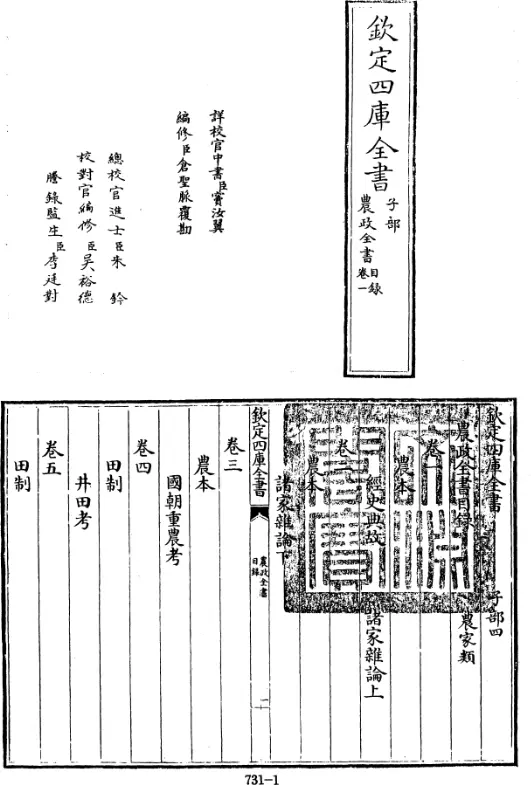 欽定四庫全書
子部
農政全書
目錄
卷一
詳校官中書臣竇汝翼
編修臣倉聖脈覆勘
總校官進士臣朱鈐
校對官編修臣吳裕德
謄錄監生臣李廷對
欽定四庫全書 子部四
農政全書目錄 農家類
卷一
農本
經史典故 諸家雜論上
卷二
農本
諸家雜論下
欽定四庫全書
農政全書
目錄
一
卷三
農本
國朝重農考
卷四
田制
井田考
卷五
田制
731-1